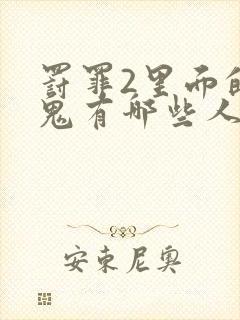 罚罪2里面的
鬼有哪些人
安东尼奥